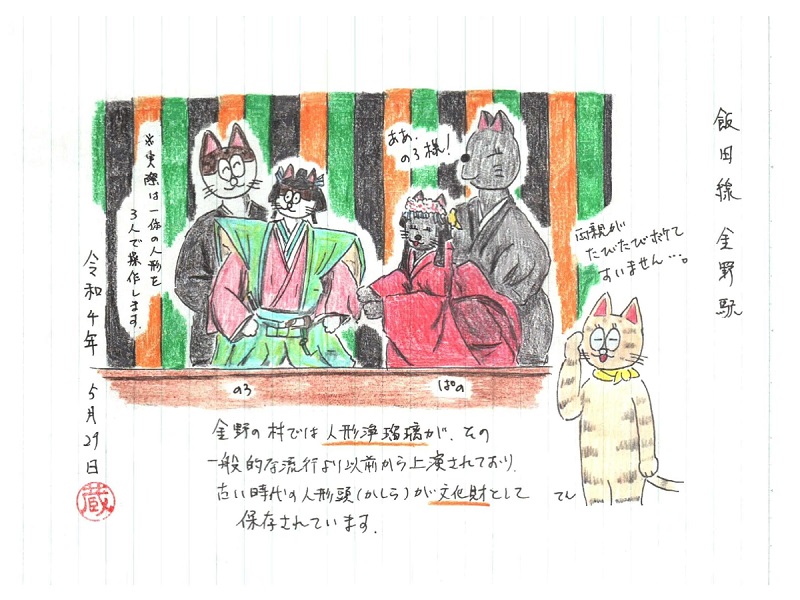 飯田線 金野駅
ああ、
のろ様！
※実際は一体の人形を
3人で操作します。
両親が
たびたびボケて
すいません…。
のろ
ぱの
金野の村では人形浄瑠璃が、その
一般的な流行より以前から上演されており、
古い時代の人形頭(かしら)が文化財として
保存されています。
てん
令和4年 5月29日
蔵